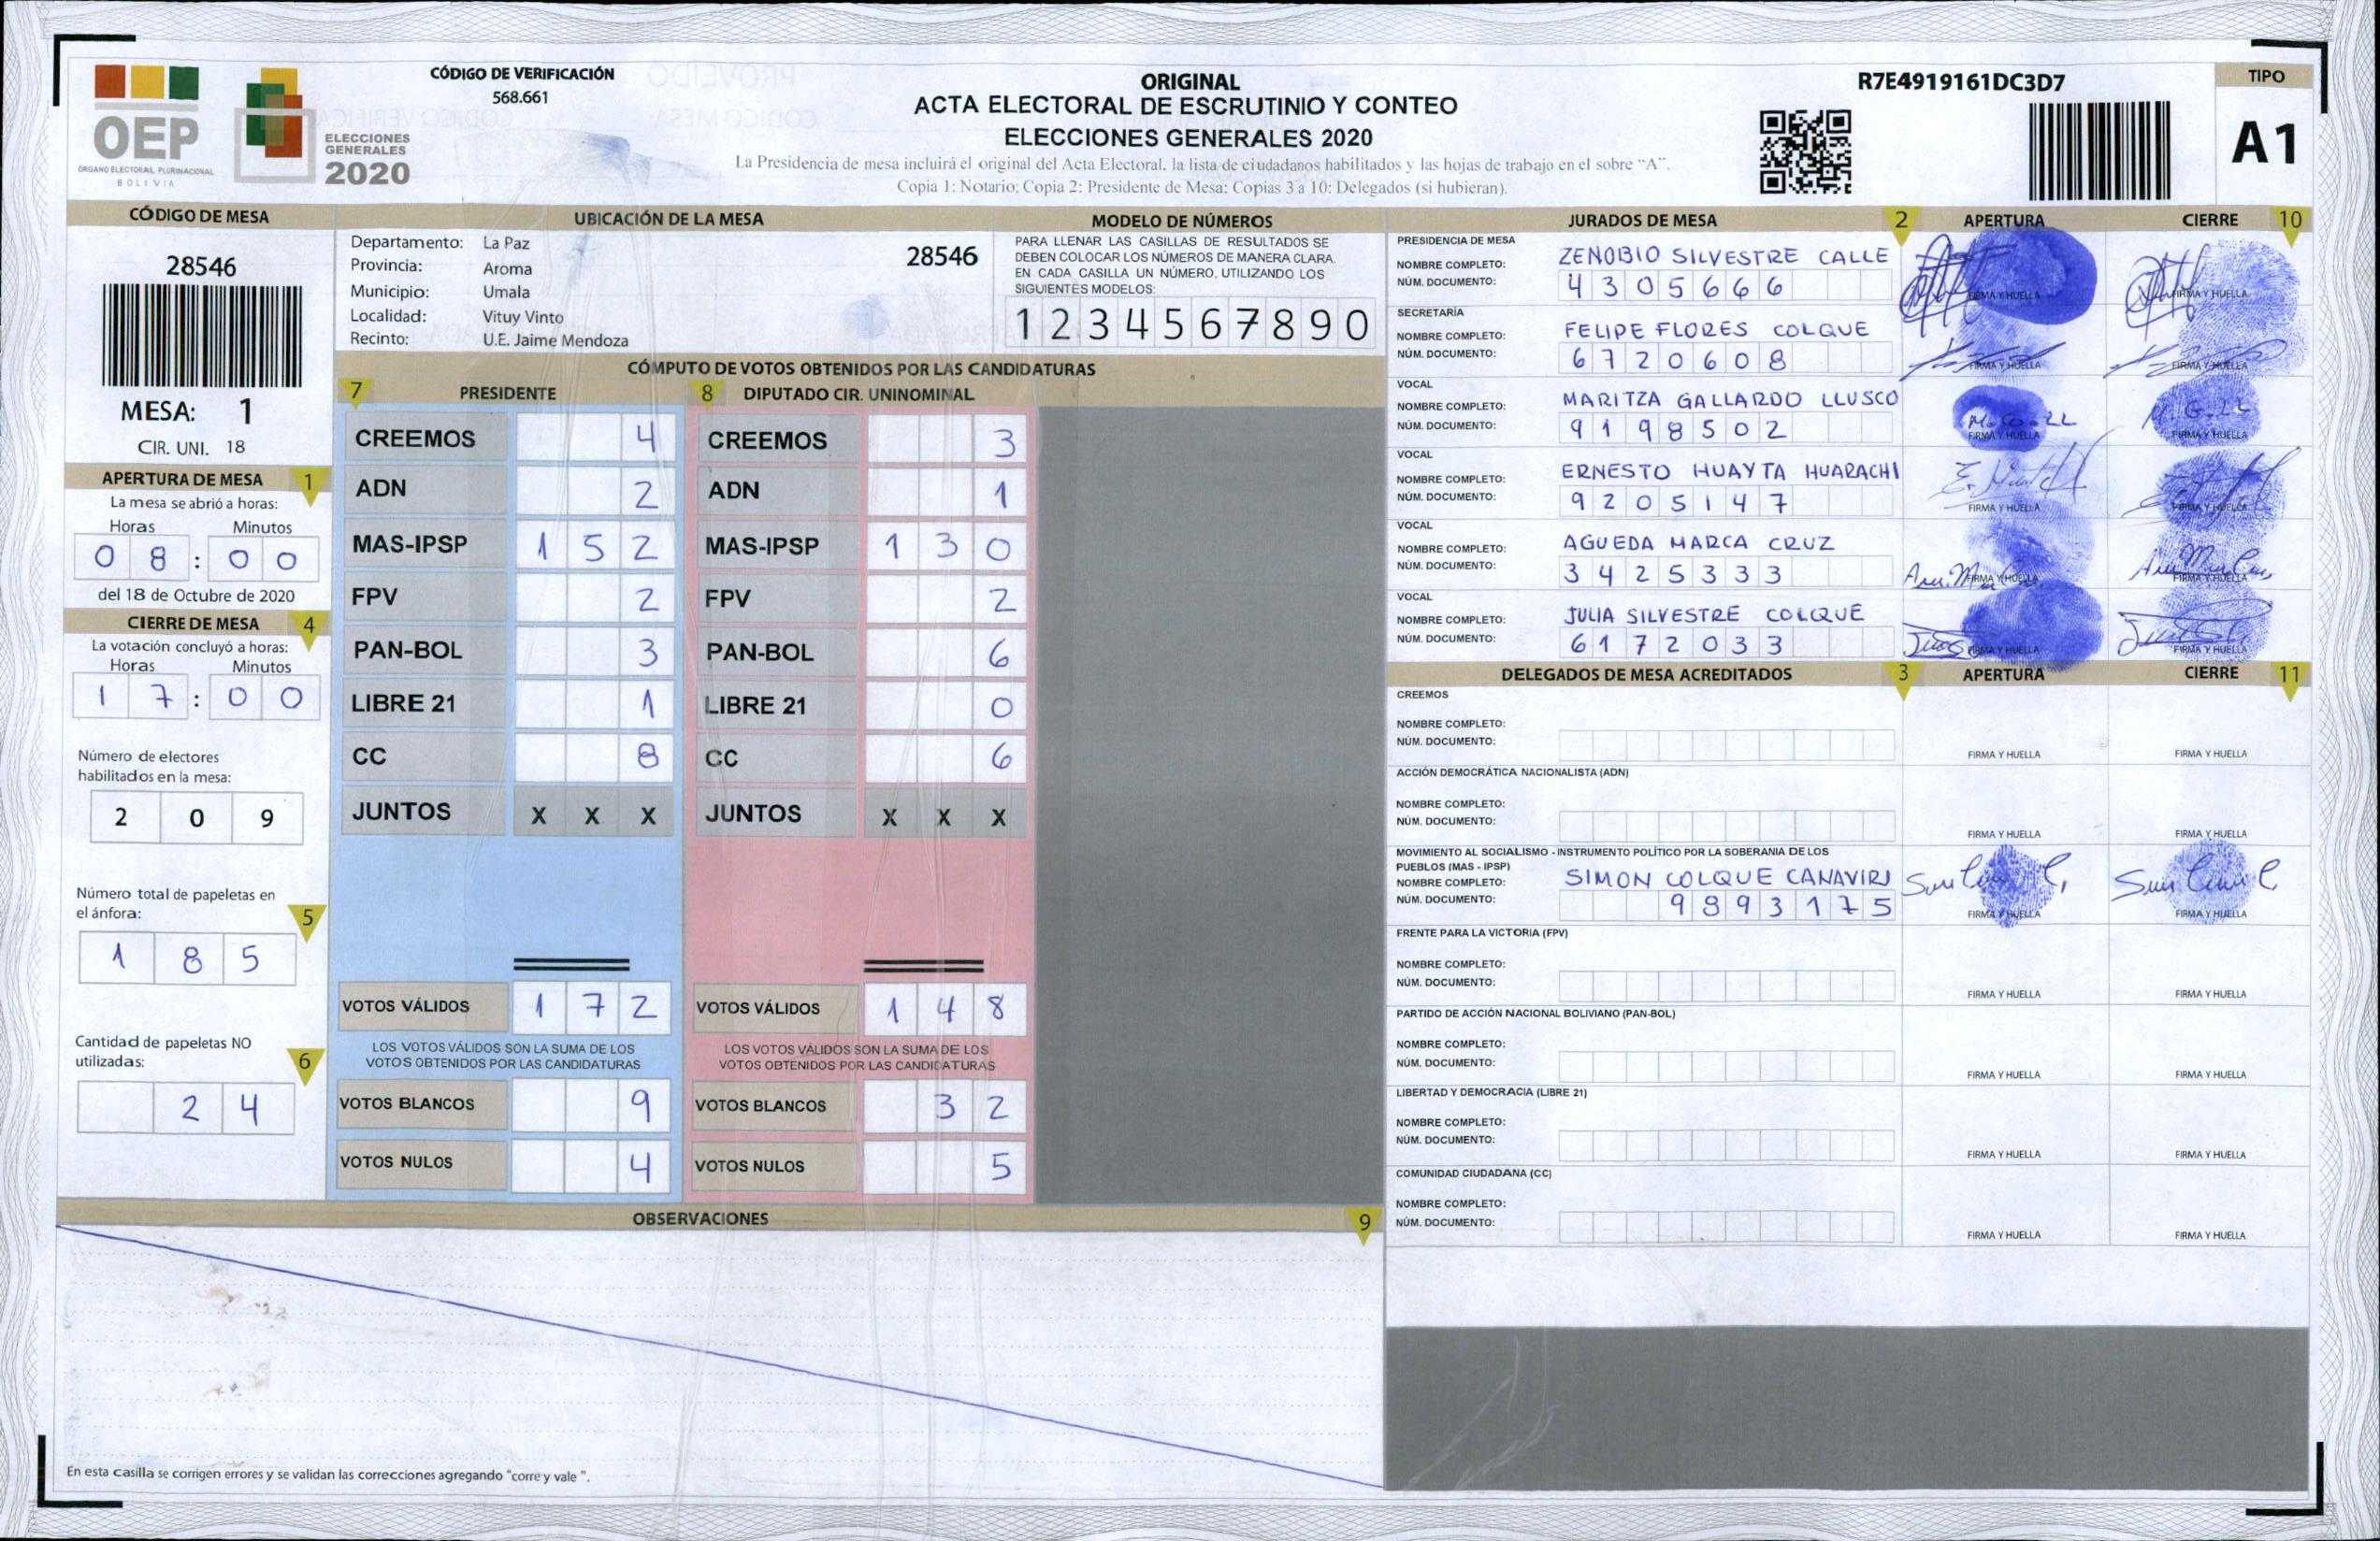 OEP
ÓRGANO ELECTORAL PLURINACIONAL
BOLIVIA
ELECCIONES
GENERALES
2020
CÓDIGO DE VERIFICACIÓN
568.661
ORIGINAL
ACTA ELECTORAL DE ESCRUTINIO Y CONTEO
ELECCIONES GENERALES 2020
La Presidencia de mesa incluirá el original del Acta Electoral, la lista de ciudadanos habilitados y las hojas de trabajo en el sobre “A”.
Copia 1: Notario; Copia 2: Presidente de Mesa; Copias 3 a 10: Delegados (si hubieran).
R7E4919161DC3D7
TIPO
A1
CÓDIGO DE MESA
28546
MESA: 1
CIR. UNI. 18
APERTURA DE MESA 1
La mesa se abrió a horas:
Horas Minutos
0 8 : 0 0
del 18 de Octubre de 2020
CIERRE DE MESA 4
La votación concluyó a horas:
Horas Minutos
1 7 : 0 0
Número de electores
habilitados en la mesa:
2 0 9
Número total de papeletas en
el ánfora: 5
1 8 5
Cantidad de papeletas NO
utilizadas: 6
2 4
UBICACIÓN DE LA MESA
Departamento: La Paz
28546
Provincia: Aroma
Municipio: Umala
Localidad: Vituy Vinto
Recinto: U.E. Jaime Mendoza
MODELO DE NÚMEROS
PARA LLENAR LAS CASILLAS DE RESULTADOS SE
DEBEN COLOCAR LOS NÚMEROS DE MANERA CLARA.
EN CADA CASILLA UN NÚMERO, UTILIZANDO LOS
SIGUIENTES MODELOS:
1 2 3 4 5 6 7 8 9 0
CÓMPUTO DE VOTOS OBTENIDOS POR LAS CANDIDATURAS
7 PRESIDENTE
CREEMOS 4
ADN 2
MAS-IPSP 1 5 2
FPV 2
PAN-BOL 3
LIBRE 21 1
CC 8
JUNTOS X X X
VOTOS VÁLIDOS 1 7 2
LOS VOTOS VÁLIDOS SON LA SUMA DE LOS
VOTOS OBTENIDOS POR LAS CANDIDATURAS
VOTOS BLANCOS 9
VOTOS NULOS 4
8 DIPUTADO CIR. UNINOMINAL
CREEMOS 3
ADN 1
MAS-IPSP 1 3 0
FPV 2
PAN-BOL 6
LIBRE 21 0
CC 6
JUNTOS X X X
VOTOS VÁLIDOS 1 4 8
LOS VOTOS VÁLIDOS SON LA SUMA DE LOS
VOTOS OBTENIDOS POR LAS CANDIDATURAS
VOTOS BLANCOS 3 2
VOTOS NULOS 5
OBSERVACIONES 9
En esta casilla se corrigen errores y se validan las correcciones agregando "corre y vale ".
JURADOS DE MESA 2 APERTURA CIERRE 10
PRESIDENCIA DE MESA
NOMBRE COMPLETO: ZENOBIO SILVESTRE CALLE
NÚM. DOCUMENTO: 4 3 0 5 6 6 6
FIRMA Y HUELLA FIRMA Y HUELLA
SECRETARÍA
NOMBRE COMPLETO: FELIPE FLORES COLQUE
NÚM. DOCUMENTO: 6 7 2 0 6 0 8
FIRMA Y HUELLA FIRMA Y HUELLA
VOCAL
NOMBRE COMPLETO: MARITZA GALLARDO LLUSCO
NÚM. DOCUMENTO: 9 1 9 8 5 0 2
FIRMA Y HUELLA FIRMA Y HUELLA
VOCAL
NOMBRE COMPLETO: ERNESTO HUAYTA HUARACHI
NÚM. DOCUMENTO: 9 2 0 5 1 4 7
FIRMA Y HUELLA FIRMA Y HUELLA
VOCAL
NOMBRE COMPLETO: AGUEDA MARCA CRUZ
NÚM. DOCUMENTO: 3 4 2 5 3 3 3
FIRMA Y HUELLA FIRMA Y HUELLA
VOCAL
NOMBRE COMPLETO: JULIA SILVESTRE COLQUE
NÚM. DOCUMENTO: 6 1 7 2 0 3 3
FIRMA Y HUELLA FIRMA Y HUELLA
DELEGADOS DE MESA ACREDITADOS 3 APERTURA CIERRE 11
CREEMOS
NOMBRE COMPLETO:
NÚM. DOCUMENTO:
FIRMA Y HUELLA FIRMA Y HUELLA
ACCIÓN DEMOCRÁTICA NACIONALISTA (ADN)
NOMBRE COMPLETO:
NÚM. DOCUMENTO:
FIRMA Y HUELLA FIRMA Y HUELLA
MOVIMIENTO AL SOCIALISMO - INSTRUMENTO POLÍTICO POR LA SOBERANIA DE LOS
PUEBLOS (MAS - IPSP)
NOMBRE COMPLETO: SIMON COLQUE CANAVIRI
NÚM. DOCUMENTO: 9 8 9 3 1 7 5
FIRMA Y HUELLA FIRMA Y HUELLA
FRENTE PARA LA VICTORIA (FPV)
NOMBRE COMPLETO:
NÚM. DOCUMENTO:
FIRMA Y HUELLA FIRMA Y HUELLA
PARTIDO DE ACCIÓN NACIONAL BOLIVIANO (PAN-BOL)
NOMBRE COMPLETO:
NÚM. DOCUMENTO:
FIRMA Y HUELLA FIRMA Y HUELLA
LIBERTAD Y DEMOCRACIA (LIBRE 21)
NOMBRE COMPLETO:
NÚM. DOCUMENTO:
FIRMA Y HUELLA FIRMA Y HUELLA
COMUNIDAD CIUDADANA (CC)
NOMBRE COMPLETO:
NÚM. DOCUMENTO:
FIRMA Y HUELLA FIRMA Y HUELLA